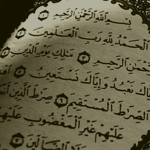 بِسْمِ اللَّهِ الرَّحْمَٰنِ الرَّحِيمِ
الْحَمْدُ لِلَّهِ رَبِّ الْعَالَمِينَ
الرَّحْمَٰنِ الرَّحِيمِ مَالِكِ يَوْمِ الدِّينِ
نَعْبُدُ وَإِيَّاكَ نَسْتَعِينُ
الصِّرَاطَ الْمُسْتَقِيمَ صِرَاطَ الَّذِينَ
عَلَيْهِمْ غَيْرِ الْمَغْضُوبِ عَلَيْهِمْ